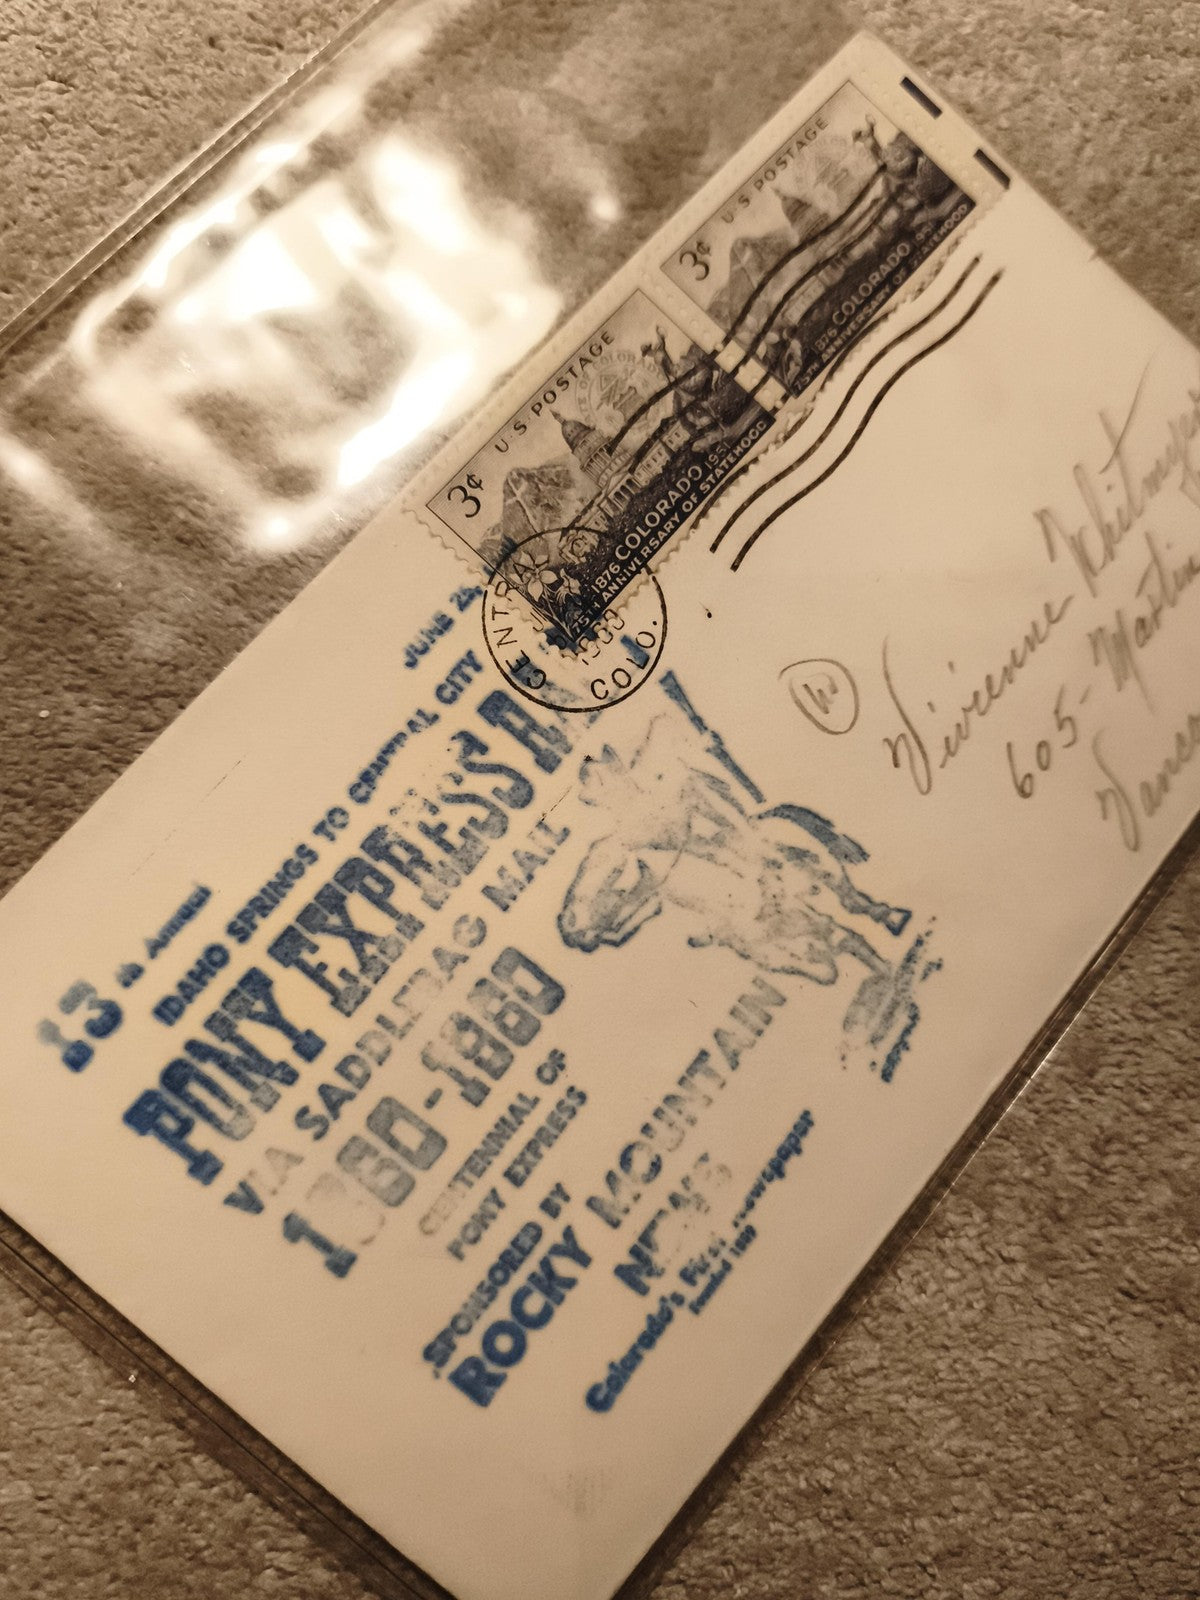 U.S. POSTAGE
3¢
1876 COLORADO 1951
75TH ANNIVERSARY OF STATEHOOD
U.S. POSTAGE
3¢
1876 COLORADO 1951
75TH ANNIVERSARY OF STATEHOOD
CENTRAL
1960
COLO.
JUNE
13th Annual
IDAHO SPRINGS TO CENTRAL CITY
PONY EXPRESS
VIA SADDLEBAG MAIL
1860-1960
CENTENNIAL OF
PONY EXPRESS
SPONSORED BY
ROCKY MOUNTAIN
NEWS
Colorado's First Newspaper
Vivienne
605 - Martin